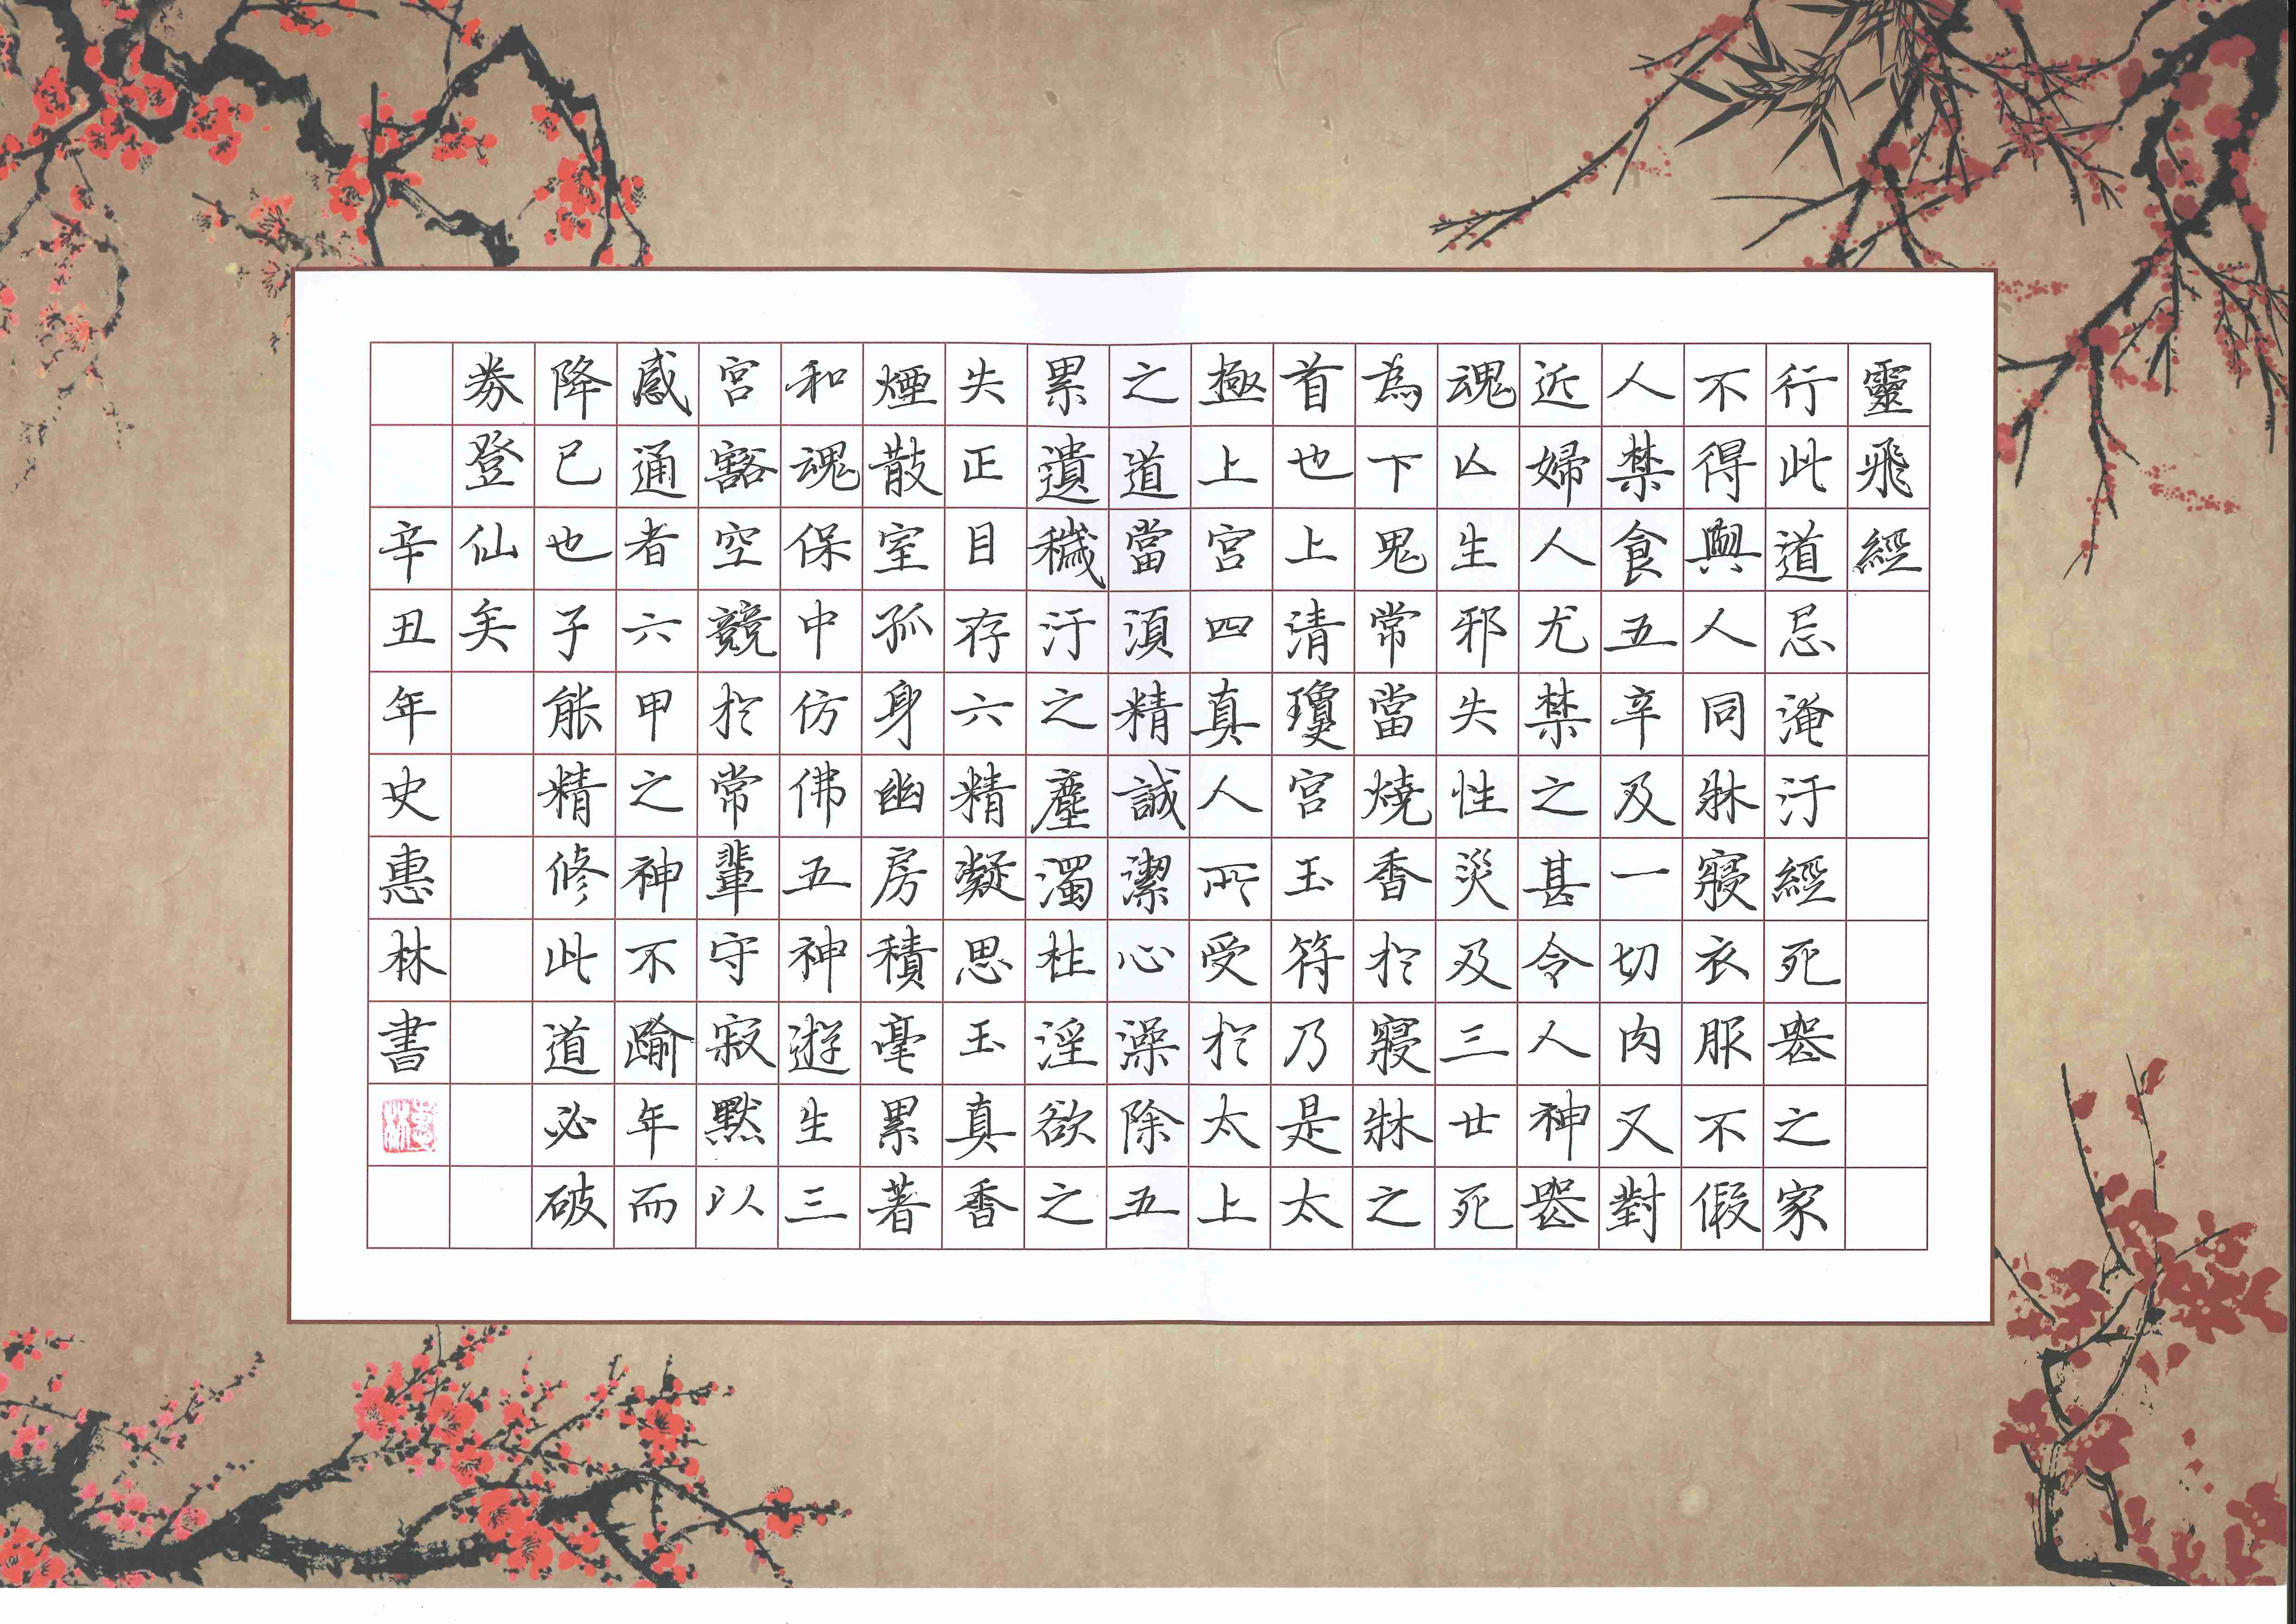 靈飛經
行此道忌淹汙經死喪之家
不得與人同牀寢衣服不假
人禁食五辛及一切肉又對
近婦人尤禁之甚令人神喪
魂亾生邪失性災及三世死
為下鬼常當燒香於寢牀之
首也上清瓊宮玉符乃是太
極上宮四真人所受於太上
之道當須精誠潔心澡除五
累遺穢汙之塵濁杜淫欲之
失正目存六精凝思玉真香
煙散室孤身幽房積毫累著
和魂保中仿佛五神遊生三
宮豁空競於常輩守寂默以
感通者六甲之神不踰年而
降已也子能精修此道必破
券登仙矣
辛丑年史惠林書